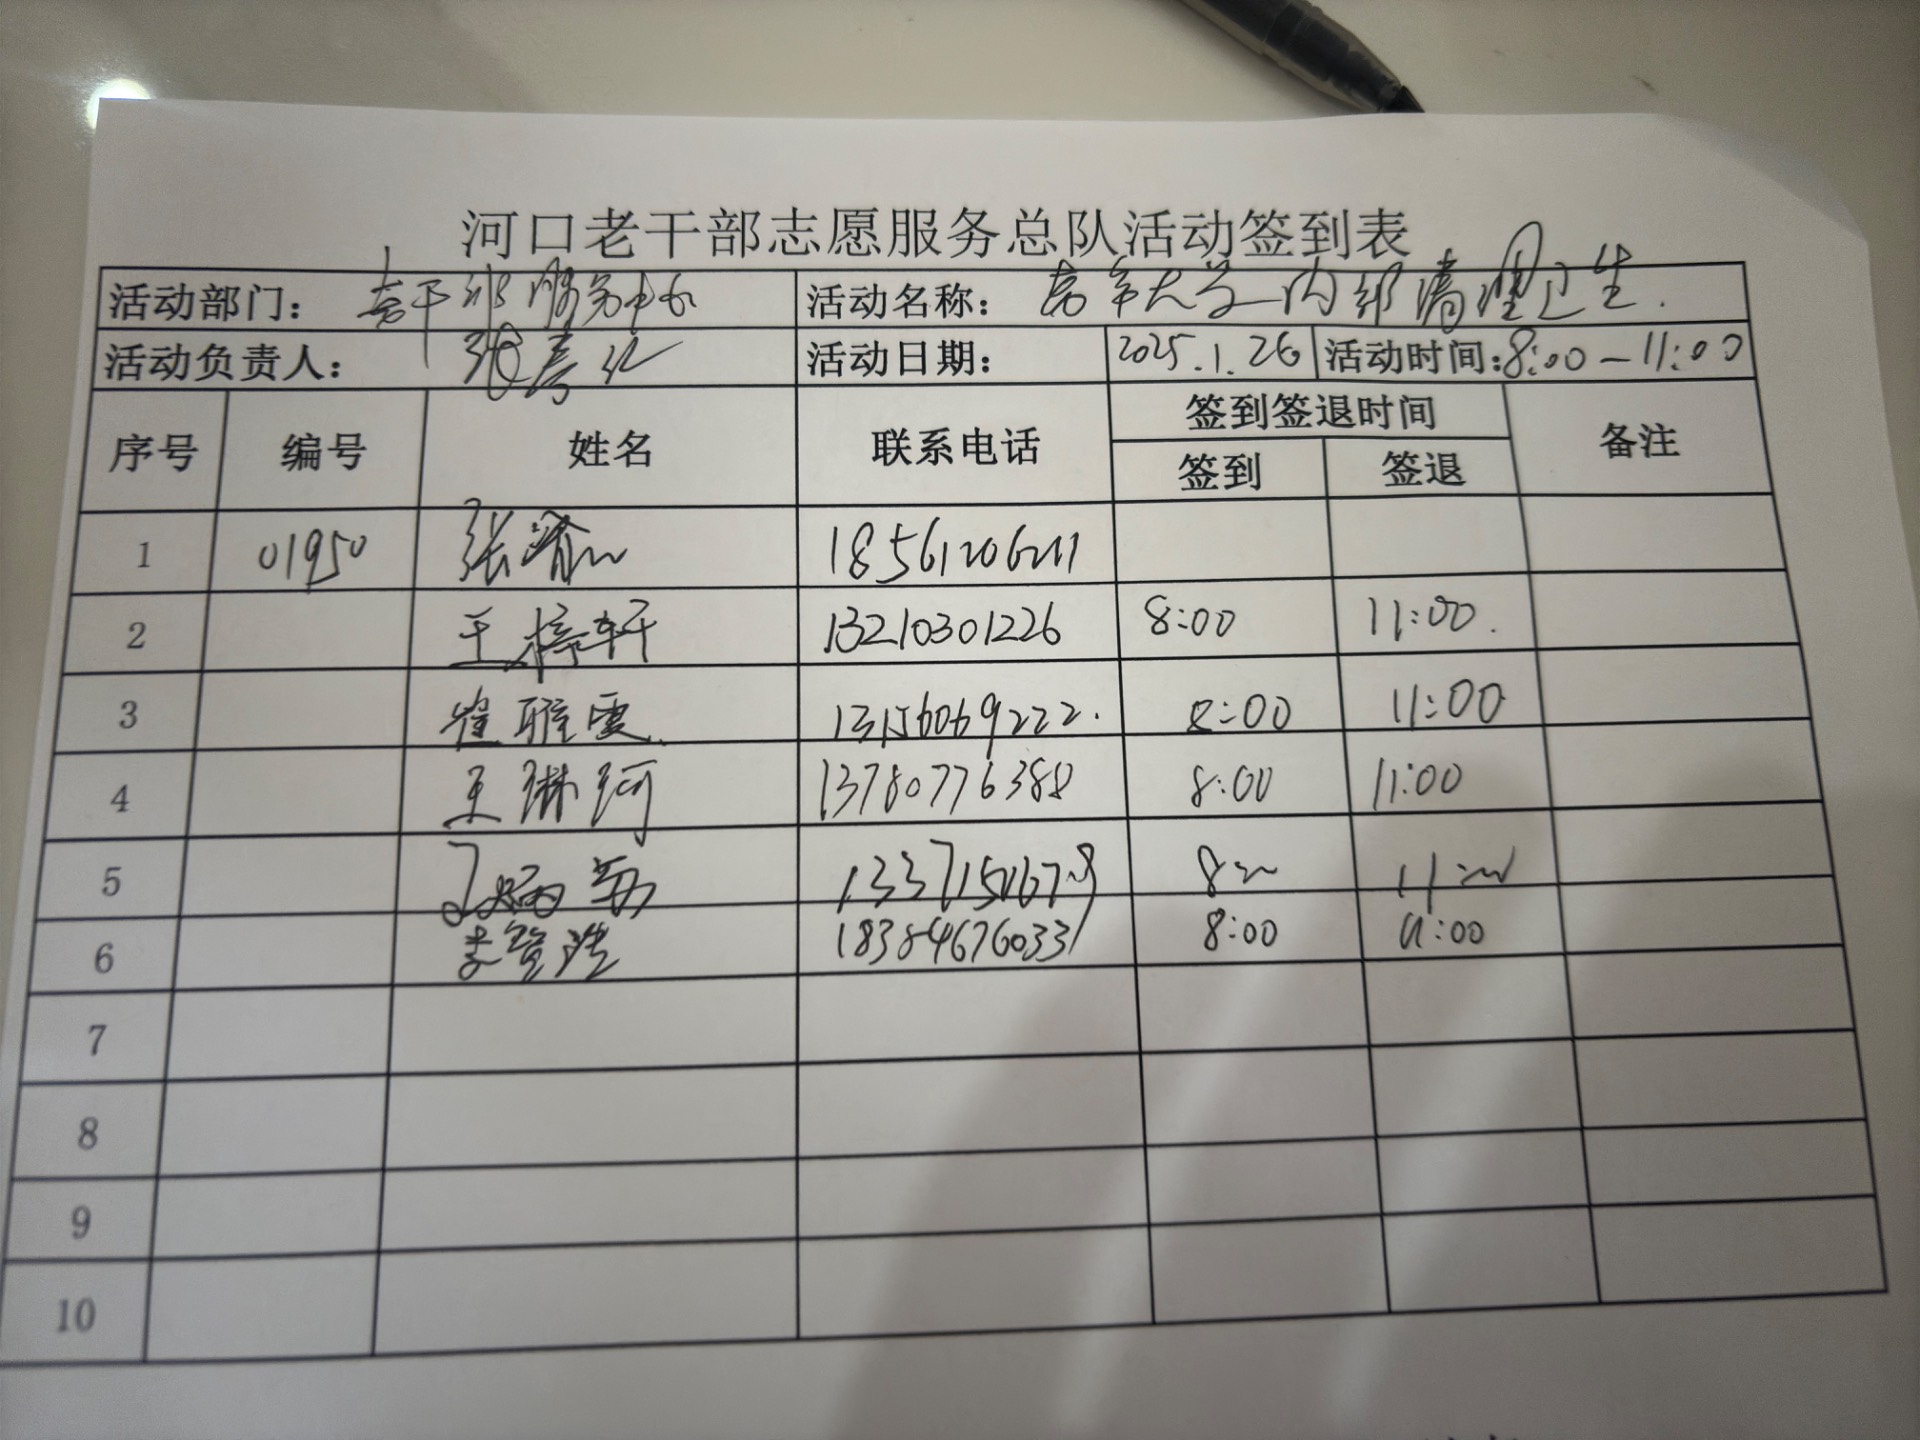 河口老干部志愿服务总队活动签到表
活动部门： 老干部服务中心 活动名称： 老年大学内部清理卫生.
活动负责人： 张春 活动日期： 2025.1.26 活动时间：8:00-11:00
序号 编号 姓名 联系电话 签到签退时间 备注
签到 签退
1 01950 张瀹 18561206211
2 王梓轩 13210301226 8:00 11:00.
3 崔雅雯. 13156069222. 8:00 11:00
4 王琳珂 13780776388 8:00 11:00
5
6 李 18384676033 8:00 11:00
7
8
9
10